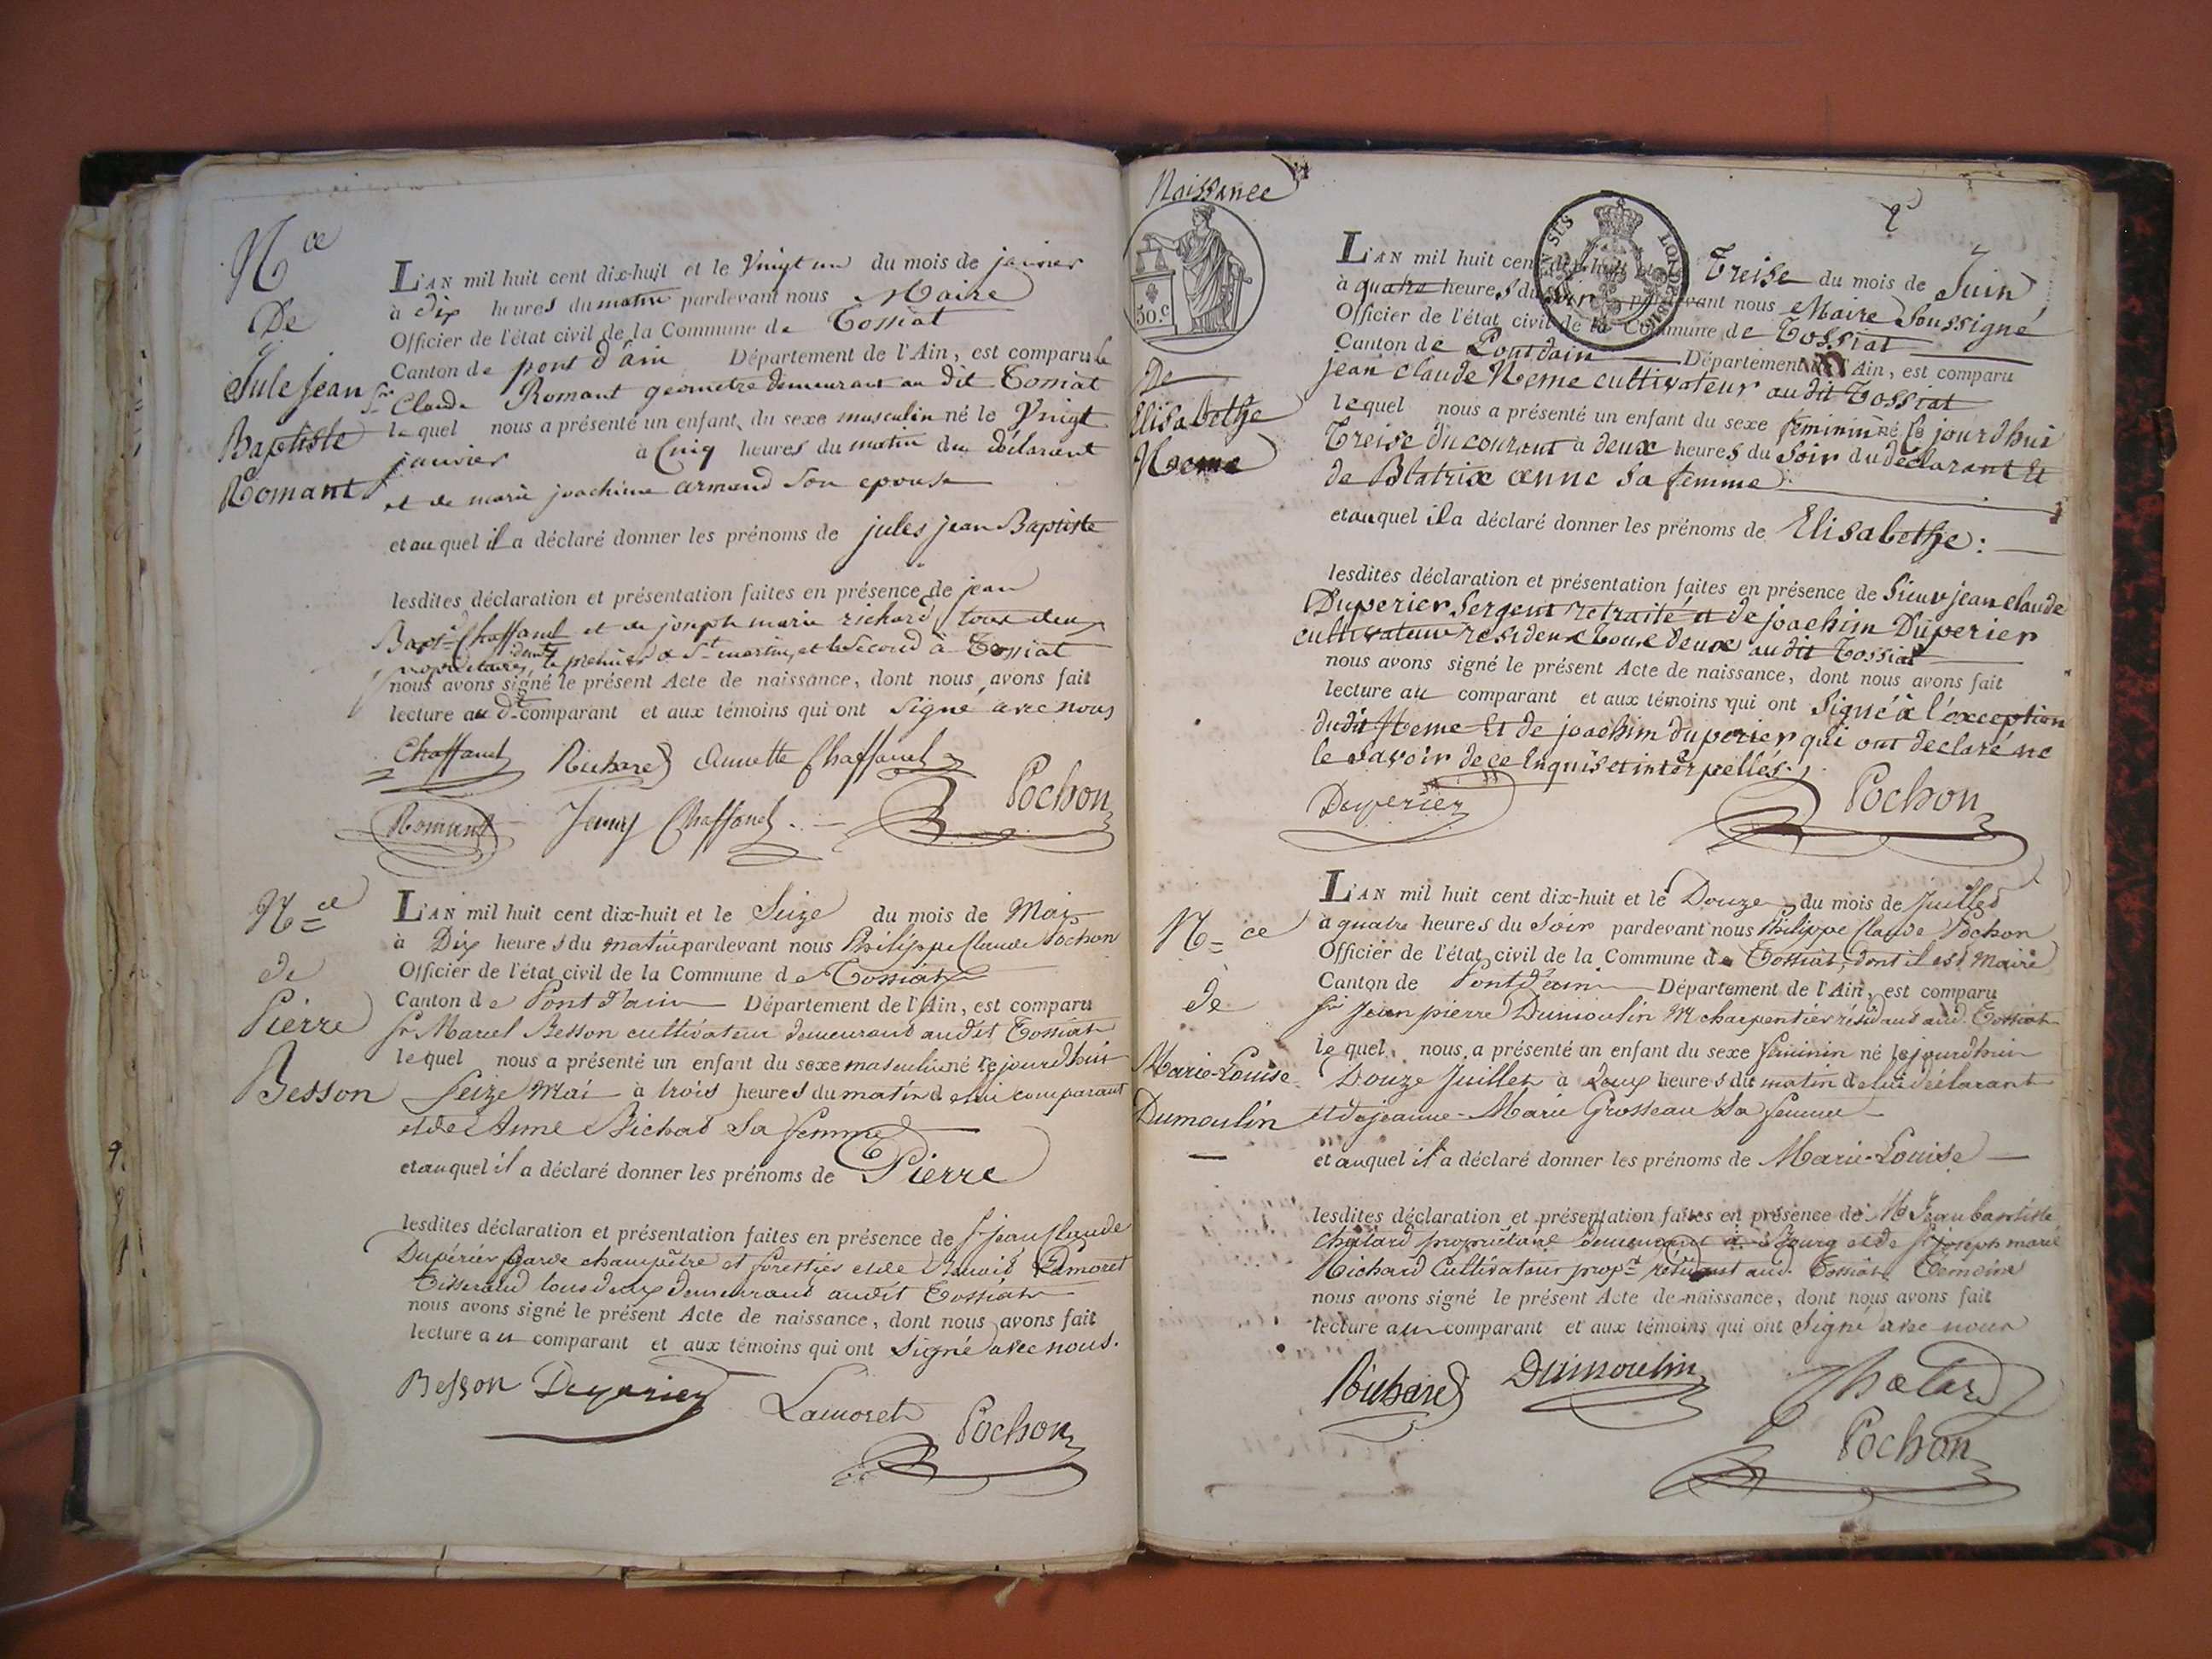 Nce
De
Jule Jean
Baptiste
Romant
L'AN mil huit cent dix-huit et le Vingt un du mois de janvier
à dix heures du matin pardevant nous Maire
Officier de l'état civil de la Commune de Tossiat
Canton de pont d'ain Département de l'Ain, est comparu le
Sr Claude Romant geometre demeurant au dit Tossiat
lequel nous a présenté un enfant du sexe masculin né le Vingt
janvier à Cinq heures du matin du déclarant
et de marie joachime armand son epouse
et auquel il a déclaré donner les prénoms de jules jean Baptiste
lesdites déclaration et présentation faites en présence de jean
Bapte Chaffanel et de joseph marie richard tous deux
propriétaires, demt le premier à St martin, et le second à Tossiat
nous avons signé le présent Acte de naissance, dont nous avons fait
lecture au dt comparant et aux témoins qui ont signé avec nous
Chaffanel Richard Annette Chaffanel
Romant Jenny Chaffanel Pochon
Nce
de
Pierre
Besson
L'AN mil huit cent dix-huit et le Seize du mois de Mai
à Dix heures du matin pardevant nous Philippe Claude Pochon
Officier de l'état civil de la Commune de Tossiat
Canton de Pont d'ain Département de l'Ain, est comparu
Sr Marcel Besson cultivateur demeurant audit Tossiat
lequel nous a présenté un enfant du sexe masculin né cejourdhui
Seize Mai à trois heures du matin de lui comparant
et de Anne Bichat sa femme
et auquel il a déclaré donner les prénoms de Pierre
lesdites déclaration et présentation faites en présence de Sr jean Claude
Dupérier Garde champêtre et forestier et de Benoit Lamoret
Tisserand tous deux demeurant audit Tossiat
nous avons signé le présent Acte de naissance, dont nous avons fait
lecture au comparant et aux témoins qui ont signé avec nous.
Besson Duperier Lamoret Pochon
Naissance
30.c
De
Elisabethe
Neme
L'AN mil huit cent dix-huit et le Treise du mois de Juin
à quatre heures du soir pardevant nous Maire soussigné
Officier de l'état civil de la Commune de Tossiat
Canton de Pontdain Département de l'Ain, est comparu
jean claude Neme cultivateur au dit Tossiat
lequel nous a présenté un enfant du sexe feminin né ce jourdhui
Treise du courant à deux heures du soir du déclarant et
de Blatrix anne sa femme
et auquel il a déclaré donner les prénoms de Elisabethe:
lesdites déclaration et présentation faites en présence de Sieur jean claude
Duperier Sergent retraité et de joachim Duperier
cultivateur residens tous deux audit Tossiat
nous avons signé le présent Acte de naissance, dont nous avons fait
lecture au comparant et aux témoins qui ont signé à l'exception
dudit Neme et de joachim duperier qui ont declaré ne
le savoir de ce enquis et interpellés.
Duperier Pochon
Nce
de
Marie-Louise
Dumoulin
L'AN mil huit cent dix-huit et le Douze du mois de Juillet
à quatre heures du Soir pardevant nous Philippe Claude Pochon
Officier de l'état civil de la Commune de Tossiat, dont il est Maire
Canton de Pont d'ain Département de l'Ain, est comparu
Sr Jean pierre Dumoulin M charpentier résidant aud. Tossiat
lequel nous a présenté un enfant du sexe féminin né cejourdhui
Douze Juillet à Deux heures du matin de lui déclarant
et de jeanne-Marie Grosseau sa femme
et auquel il a déclaré donner les prénoms de Marie-Louise
lesdites déclaration et présentation faites en présence de Mr Jean baptiste
Chalard propriétaire demeurant à Bourg et de Sr Joseph marie
Richard Cultivateur propre résidant aud. Tossiat Témoins
nous avons signé le présent Acte de naissance, dont nous avons fait
lecture au comparant et aux témoins qui ont signé avec nous
Richard Dumoulin Chalard
Pochon